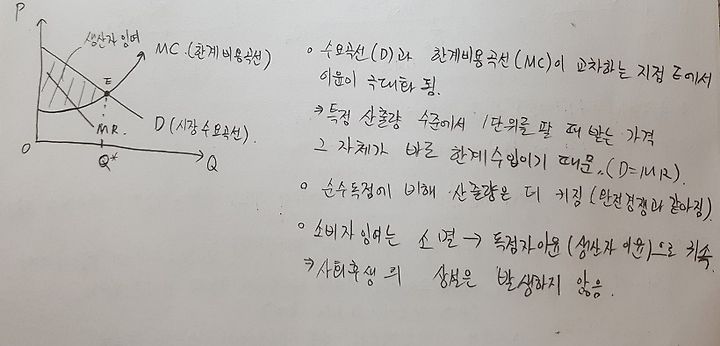 P
생산자 잉여
MC.(한계비용곡선)
E
MR.
D(시장수요곡선).
O
Q*
Q
○ 수요곡선(D)과 한계비용곡선(MC)이 교차하는 지점 E에서
이윤이 극대화 됨.
⇒ 특정 산출량 수준에서 1단위를 팔 때 받는 가격
그 자체가 바로 한계수입이기 때문.(D=MR).
○ 순수독점에 비해 산출량은 더 커짐 (완전경쟁과 같아짐).
○ 소비자잉여는 소멸 → 독점자이윤(생산자 이윤)으로 귀속.
⇒ 사회후생의 상실은 발생하지 않음.